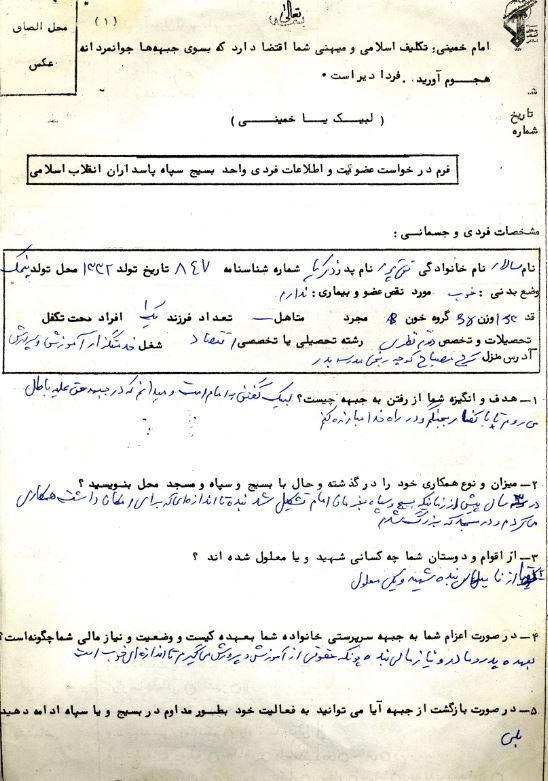 تعالی
(۱)
محل الصاق
عکس
امام خمینی: تکلیف اسلامی و میهنی شما اقتضا دارد که بسوی جبهه‌ها جوانمردانه
هجوم آورید. فردا دیر است.
تاریخ
شماره
(لبیک یا خمینی)
فرم درخواست عضویت و اطلاعات فردی واحد بسیج سپاه پاسداران انقلاب اسلامی
مشخصات فردی و جسمانی:
نام سالار نام خانوادگی نام پدر زکریا شماره شناسنامه ۸۴۷ تاریخ تولد ۱۳۳۲ محل تولد
وضع بدنی: خوب مورد نقص عضو و بیماری: ندارم
قد وزن گروه خون B مجرد متاهل تعداد فرزند یک افراد تحت تکفل
تحصیلات و تخصص رشته تحصیلی یا تخصصی اقتصاد شغل خدمتگزار آموزش و پرورش
آدرس منزل کوچه
۱- هدف و انگیزه شما از رفتن به جبهه چیست؟ لبیک گفتن به امام است و میدانم که در جبهه حق علیه باطل
می روم تا با کفار بجنگم و در راه خدا مبارزه کنم
۲- میزان و نوع همکاری خود را در گذشته و حال با بسیج و سپاه و مسجد محل بنویسید؟
در سال پیش از زمانیکه بسیج و سپاه بفرمان امام تشکیل شد بنده تا اندازه‌ای که برای امکان داشت همکاری
می‌کردم و در مسجد که بزرگ شدم
۳- از اقوام و دوستان شما چه کسانی شهید و یا معلول شده اند؟
از فامیلهای بنده شهید و یکی معلول
۴- در صورت اعزام شما به جبهه سرپرستی خانواده شما بعهده کیست و وضعیت و نیاز مالی شما چگونه‌است؟
بعهده پدر و مادر و نیاز مالی بنده چونکه حقوقی از آموزش و پرورش می‌گیرم تا اندازه‌ای خوب است
۵- در صورت بازگشت از جبهه آیا می توانید به فعالیت خود بطور مداوم در بسیج و یا سپاه ادامه دهید
بلی